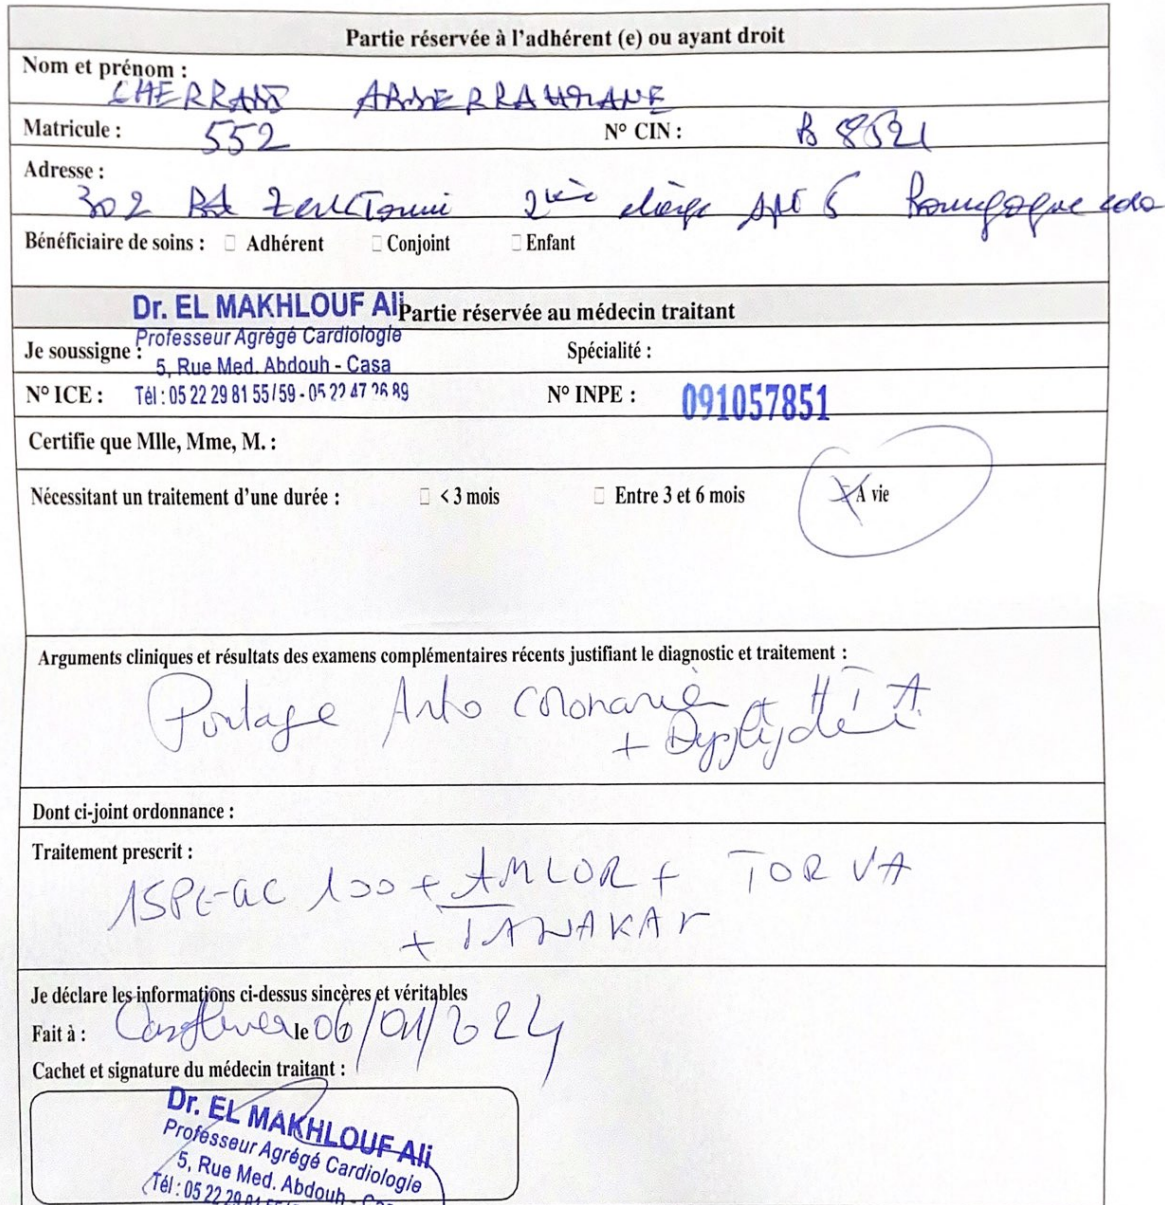 Partie réservée à l'adhérent (e) ou ayant droit
Nom et prénom :
CHERRADI ABDERRAHMANE
Matricule : 552 N° CIN : B 8521
Adresse :
302 Bd Zerktouni 2ème étage Apt 5 Bourgogne casa
Bénéficiaire de soins : Adhérent Conjoint Enfant
Dr. EL MAKHLOUF Ali
Partie réservée au médecin traitant
Professeur Agrégé Cardiologie
Je soussigne : Spécialité :
5, Rue Med. Abdouh - Casa
N° ICE : Tél : 05 22 29 81 55/59 - 05 22 47 26 89 N° INPE : 091057851
Certifie que Mlle, Mme, M. :
Nécessitant un traitement d'une durée : < 3 mois Entre 3 et 6 mois A vie
Arguments cliniques et résultats des examens complémentaires récents justifiant le diagnostic et traitement :
Pontage Aorto Coronarie HTA
+ Dyslipidémie
Dont ci-joint ordonnance :
Traitement prescrit :
ASPEGIC 100 + AMLOR + TORVA
+ TAWAKAR
Je déclare les informations ci-dessus sincères et véritables
Fait à : le 06/01/2024
Cachet et signature du médecin traitant :
Dr. EL MAKHLOUF Ali
Professeur Agrégé Cardiologie
5, Rue Med. Abdouh - Casa
Tél : 05 22 29 81 55